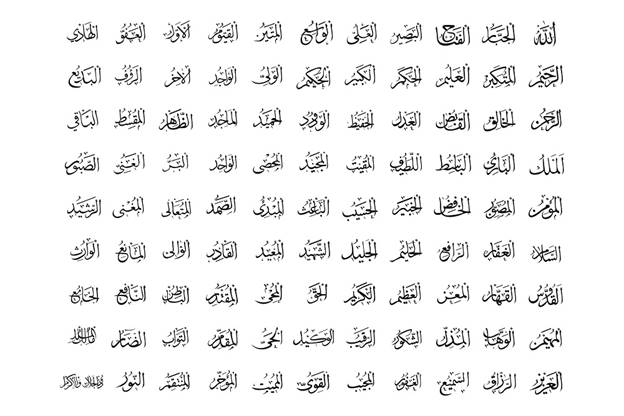 الله الجبار الفتاح البصير العلي الواسع المتين القيوم الأول العفو الهادي
الرحيم المتكبر العليم الحكم الكبير الحكيم الولي الواجد الآخر الرؤف البديع
الرحمن الخالق القابض العدل الحفيظ الودود الحميد الماجد الظاهر المقسط الباقي
الملك الباري الباسط اللطيف المقيت المجيد المحصي الواحد البر الغني الصبور
المؤمن المصور الخافض الخبير الحسيب الباعث المبدئ الصمد المتعالي المغني الرشيد
السلام الغفار الرافع الحليم الجليل الشهيد المعيد القادر الوالي المانع الوارث
القدوس القهار المعز العظيم الكريم الحق المحيي المقتدر الباطن النافع الجامع
المهيمن الوهاب المذل الشكور الرقيب الوكيل الحي المقدم التواب الضار مالك الملك
العزيز الرزاق السميع الغفور المجيب القوي المميت المؤخر المنتقم النور ذو الجلال والإكرام